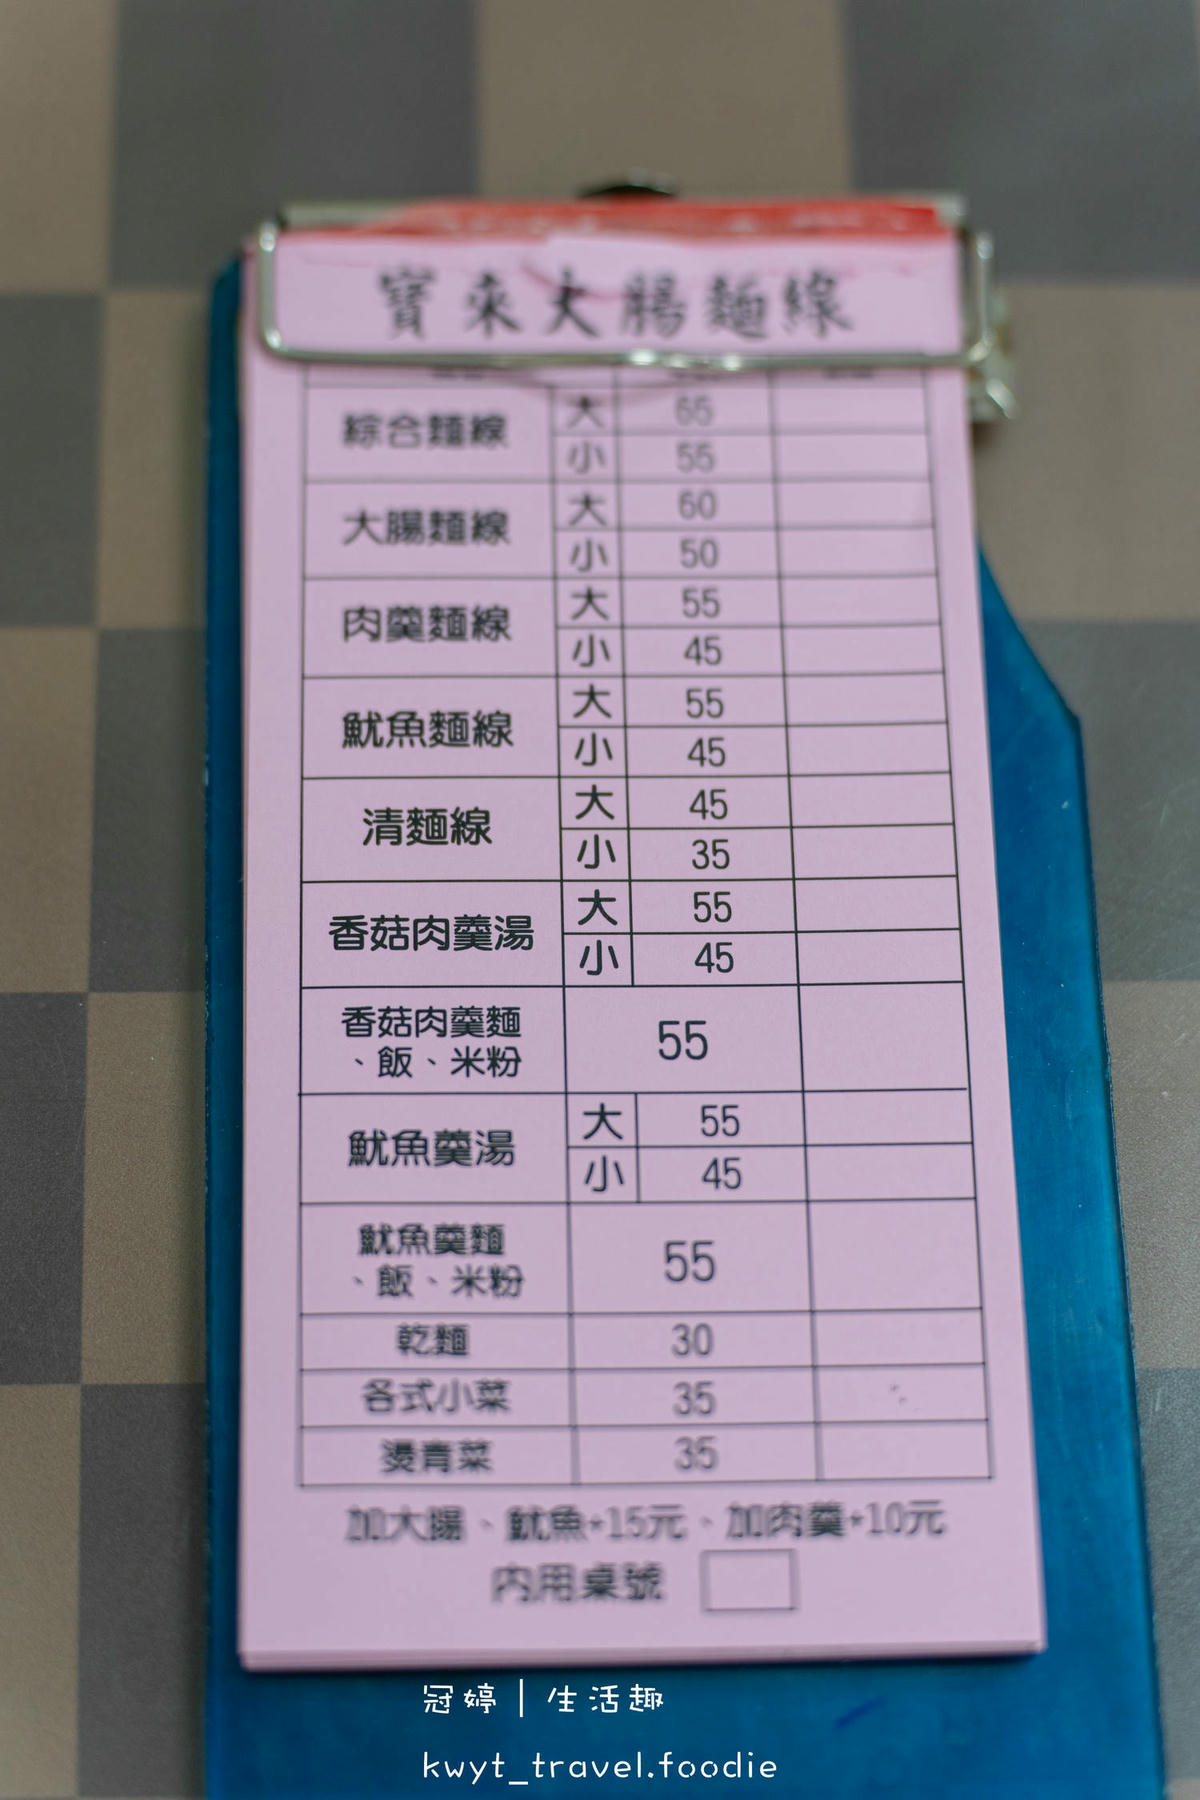 寶來大腸麵線
綜合麵線 大 65
小 55
大腸麵線 大 60
小 50
肉羹麵線 大 55
小 45
魷魚麵線 大 55
小 45
清麵線 大 45
小 35
香菇肉羹湯 大 55
小 45
香菇肉羹麵
、飯、米粉 55
魷魚羹湯 大 55
小 45
魷魚羹麵
、飯、米粉 55
乾麵 30
各式小菜 35
燙青菜 35
加大腸、魷魚+15元、加肉羹+10元
內用桌號
冠婷 | 生活趣
kwyt_travel.foodie